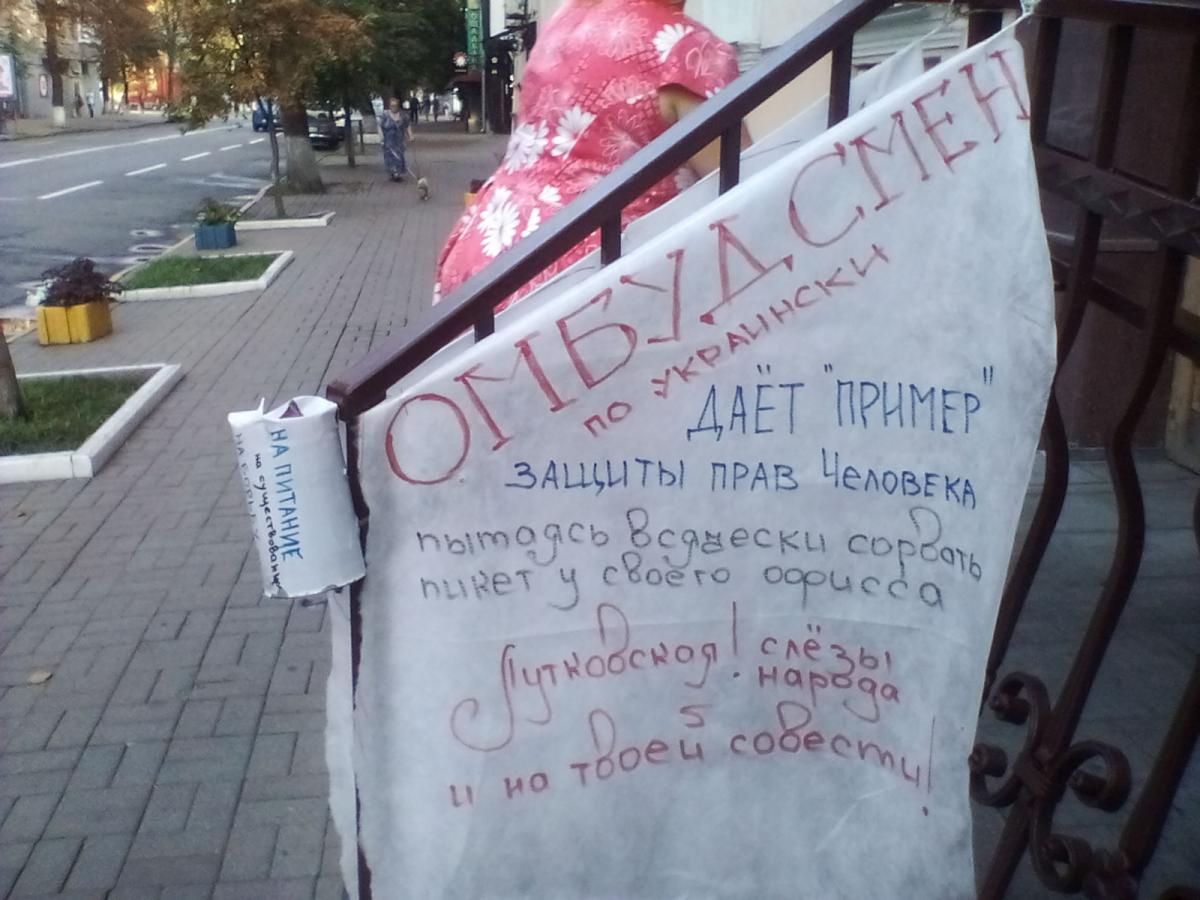 ОМБУДСМЕН
ПО УКРАИНСКИ
ДАЁТ "ПРИМЕР"
ЗАЩИТЫ ПРАВ ЧЕЛОВЕКА
пытаясь всячески сорвать
пикет у своего офисса
Лутковская! слёзы
народа
и на твоей совести!
НА ПИТАНИЕ
на существование